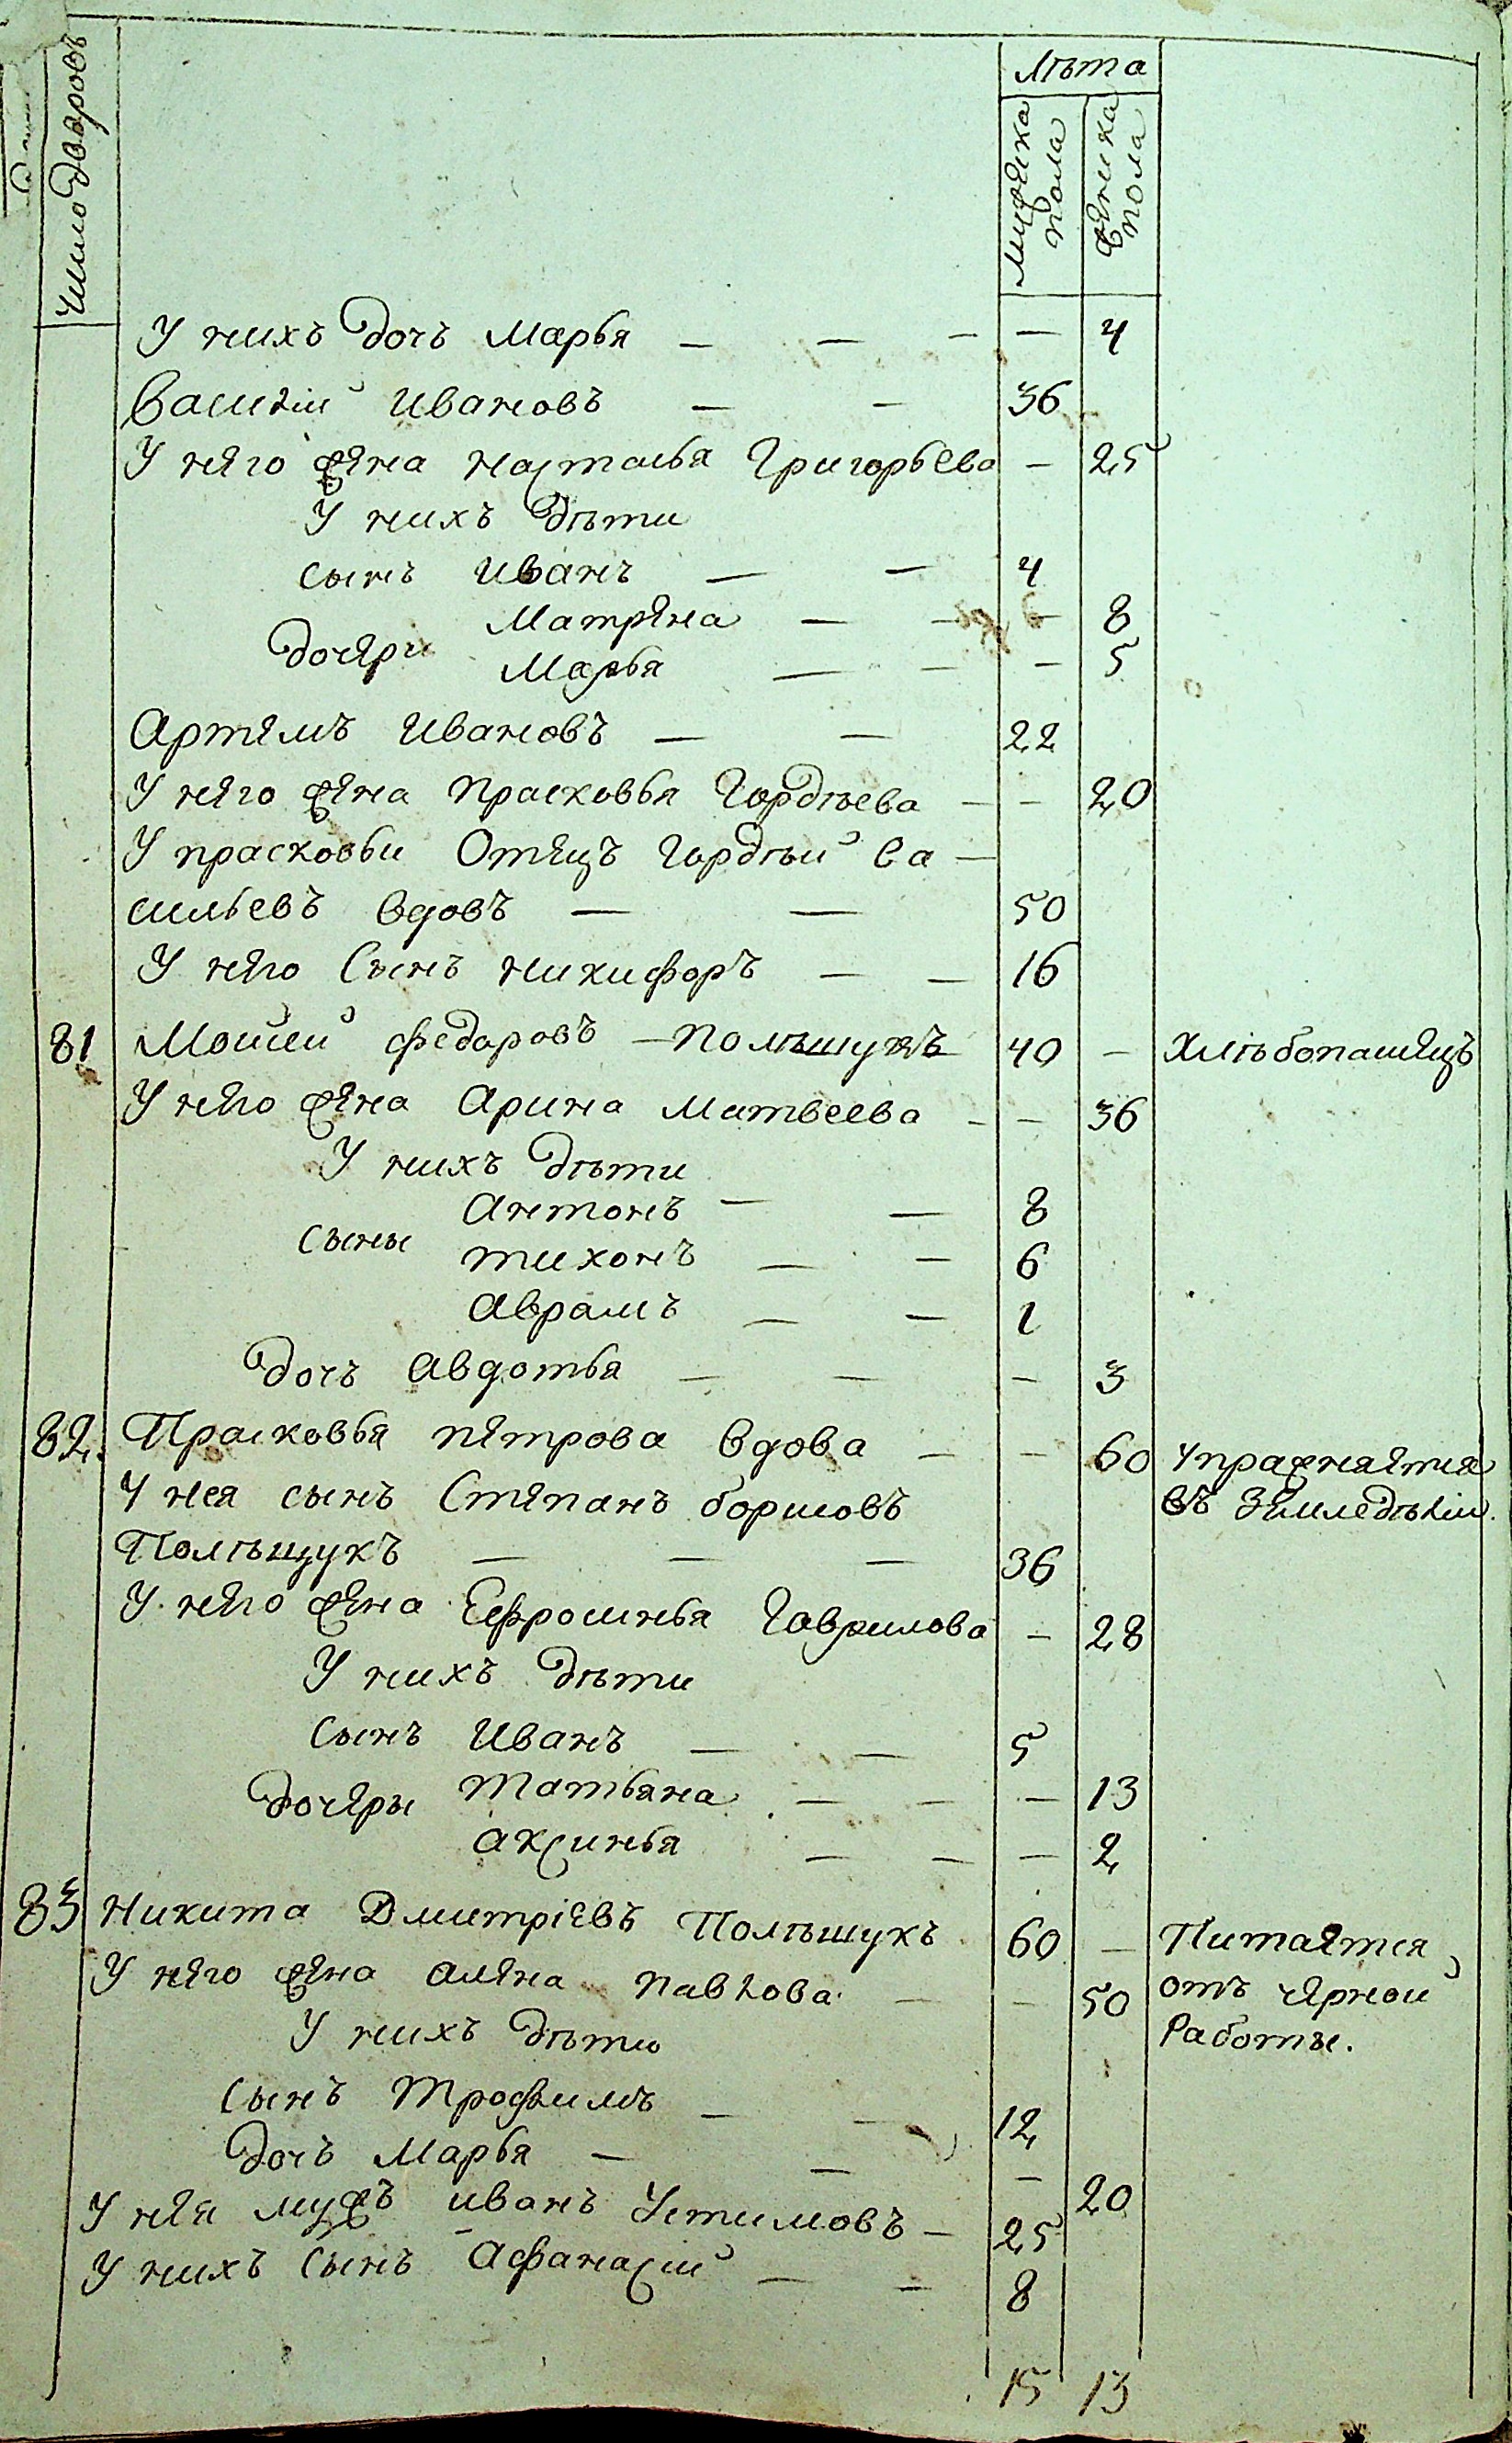 Число дваровъ
Лѣта
мужска пола
женска пола
У нихъ дочь Марья — — — — 4
Василій Ивановъ — — 36
У него жена Настасья Григорьева — 25
У нихъ дѣти
сынъ Иванъ — — 4
дочери Матрена — — — 8
Марья — — — 5
Артемъ Ивановъ — — 22
У него жена Прасковья Гордѣева — — 20
У Прасковьи Отецъ Гордѣй Ва—
сильевъ вдовъ — — 50
У него Сынъ Никифоръ — — 16
81 Моисей Федоровъ — Полѣщукъ 40 — Хлѣбопашецъ
У него жена Арина Матвеева — — 36
У нихъ дѣти
Антонъ — — 8
сыны Тихонъ — — 6
Аврамъ — — 1
дочь Авдотья — — — 3
82. Прасковья Петрова вдова — — 60 Упражняется
У нея сынъ Степанъ Борисовъ въ Земледѣліи.
Полѣщукъ — — — 36
У него жена Ефросинья Гаврилова — 28
У нихъ дѣти
Сынъ Иванъ — — 5
дочеры Татьяна — — — 13
Аксинья — — — 2
83 Никита Дмитріевъ Полѣщукъ 60 — Питается
У него жена Алена Павлова — — 50 отъ черной
У нихъ дѣти Работы.
Сынъ Трофимъ — — 12
Дочь Марья — — — 20
У нея мужъ Иванъ Устимовъ — 25
У нихъ Сынъ Афанасій — — 8
15 13